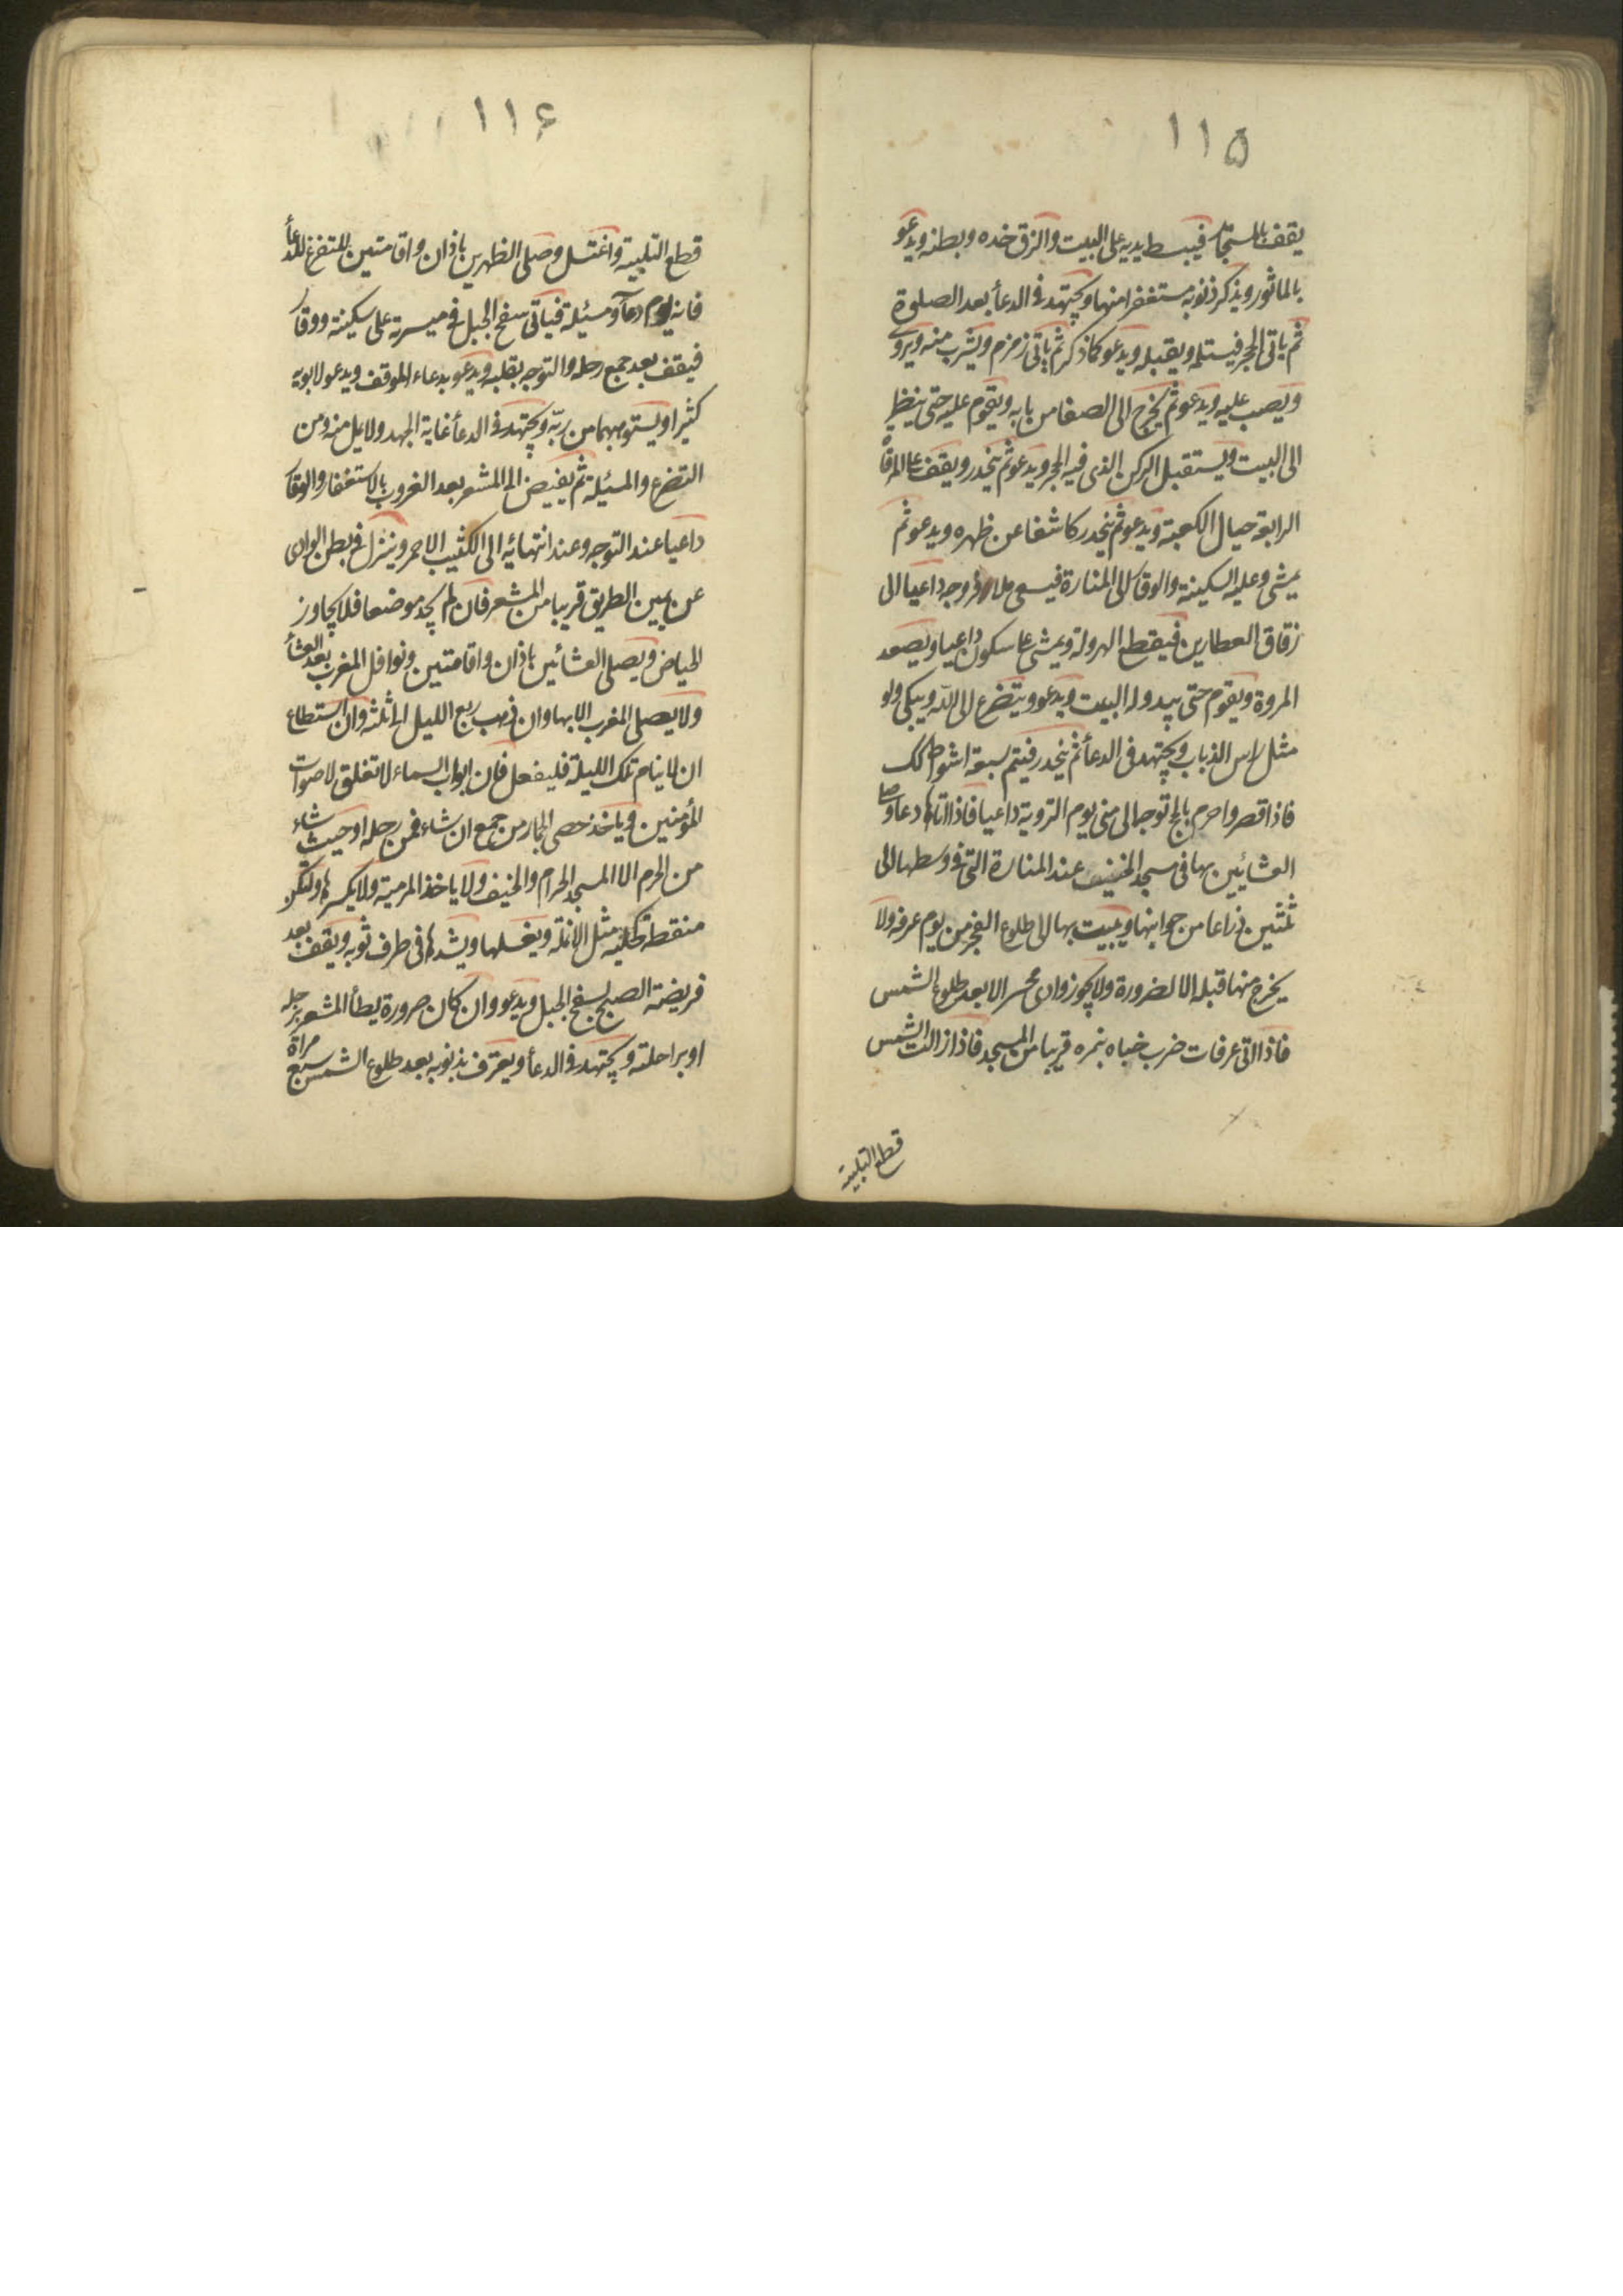 ١١۵
يقف بالمستجار فيبسط يديه على البيت والزق خده وبطنه ويدعو
بالماثور ويذكر ذنوبه مستغفرا منها ويجتهد فى الدعأ بعد الصلوة
ثم ياتى الحجر فيستلمه ويقبله ويدعو كما ذكر ثم ياتى زمزم ويشرب منه ويروى
ويصب عليه ويدعو ثم يخرج الى الصفا من بابه ويقوم عليه حتى ينظر
الى البيت ويستقبل الركن الذى فيه الحجر ويدعو ثم ينحدر ويقف على المرقاة
الرابعة حيال الكعبة ويدعو ثم ينحدر كاشفا عن ظهره ويدعو ثم
يمشى وعليه السكينة والوقار الى المنارة فيسعى ملأ فروجه داعيا الى
زقاق العطارين فيقطع الهرولة ويمشى على سكون داعيا ويصعد
المروة ويقوم حتى يبدو له البيت ويدعو ويتضرع الى الله ويبكى ولو
مثل راس الذباب ويجتهد فى الدعأ ثم ينحدر فيتم سبعة اشواط كك
فاذا قصر واحرم بالحج توجه الى منى يوم التروية داعيا فاذا اتاها دعا وصلى
العشائين بها فى مسجد الخيف عند المنارة التى فى وسطها الى
ثلثين ذراعا من جوانبها ويبيت بها الى طلوع الفجر من يوم عرفه ولا
يخرج منها قبله الا لضرورة ولا يجوز وادى محسر الا بعد طلوع الشمس
فاذا اتى عرفات ضرب خباه بنمره قريبا من المسجد فاذا زالت الشمس
قطع التلبية
١١۶
قطع التلبية واغتسل وصلى الظهرين باذان واقامتين للتفرغ للدعأ
فانه يوم دعآء ومسئلة فياتى سفح الجبل فى ميسرته على سكينة ووقار
فيقف بعد جمع رحله والتوجه بقلبه ويدعو بدعاء الموقف ويدعو لابويه
كثيرا ويستوهبهما من ربّه ويجتهد فى الدعأ غاية الجهد ولا يمل منه ومن
التضرع والمسئلة ثم يفيض الى المشعر بعد الغروب بالاستغفار والوقار
داعيا عند التوجه وعند انتهائه الى الكثيب الاحمر وينزل فى بطن الوادى
عن يمين الطريق قريبا من المشعر فان لم يجد موضعا فلا يجاوز
الحياض ويصلى العشائين باذان واقامتين ونوافل المغرب بعد العشأ
ولا يصلى المغرب الا بها وان ذهب ربع الليل الى ثلثه وان استطاع
ان لا ينام تلك الليلة فليفعل فان ابواب السماء لا تغلق لاصوات
المؤمنين وياخذ حصى الجمار من جمع ان شاء فمن رحله او حيث شاء
من الحرم الا المسجد الحرام والخيف ولا ياخذ المرمية ولا يكسرها ولتكن
منقطة كحلية مثل الانملة ويغسلها ويشدها فى طرف ثوبه ويقف بعد
فريضة الصبح بسفح الجبل ويدعو وان كان صرورة يطأ المشعر برجله
او براحلته ويجتهد فى الدعأ ويعترف بذنوبه بعد طلوع الشمس سبع مراة